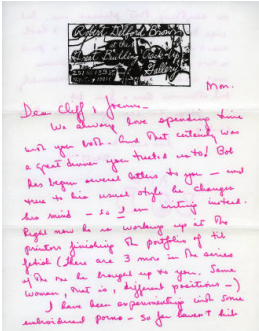 Robert Delford Brown
at the
Great Building Crack-Up
Gallery
251 W. 13 St.
Mon.
Dear Cliff & Joann—
We always love spending time
with you both. And that certainly was
a great dinner you treated us to! Bob
has begun several letters to you — and
true to his usual style he changes
his mind — so I am writing instead.
Right now he is working up at the
printers finishing the portfolio of tit
fetish (there are 3 more in the series
of the one he brought up to you. Same
woman, that is, different positions —)
I have been experimenting with some
embroidered porno — so far haven't